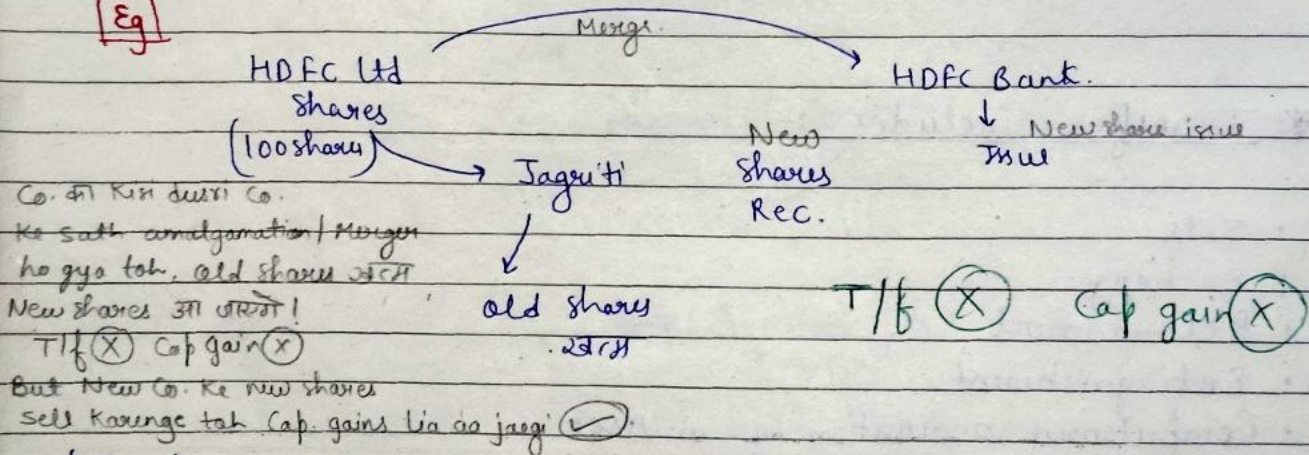 Eg
Merge.
HDFC Ltd
Shares
(100 shares)
HDFC Bank.
↓ New share issue
Issue
Jagriti
New
Shares
Rec.
Co. की Kisi dusri Co.
Ke sath amalgamation / Merger
ho gya toh, old shares खत्म
New shares आ जाएंगे!
T/f (X) Cap gain (X)
But New Co. Ke new shares
Sell Karenge toh Cap. gains lia aa jaegi ✓
old shares
खत्म
T/f (X) Cap gain (X)